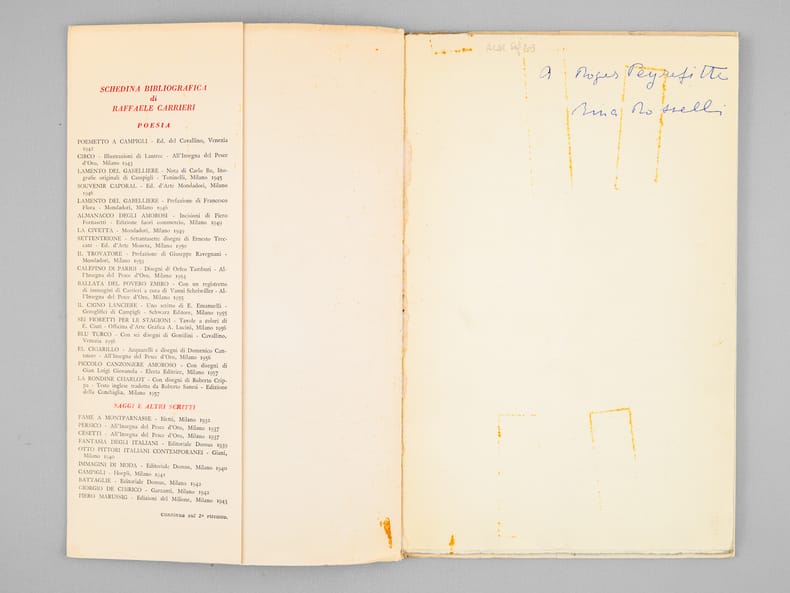 SCHEDINA BIBLIOGRAFICA
di
RAFFAELE CARRIERI
POESIA
POEMETTO A CAMPIGLI - Ed. del Cavallino, Venezia
1942
CIRCO - Illustrazioni di Lautrec - All'Insegna del Pesce
d'Oro, Milano 1943
LAMENTO DEL GABELLIERE - Nota di Carlo Bo, lito-
grafie originali di Campigli - Toninelli, Milano 1945
SOUVENIR CAPORAL - Ed. d'Arte Mondadori, Milano
1946
LAMENTO DEL GABELLIERE - Prefazione di Francesco
Flora - Mondadori, Milano 1946
ALMANACCO DEGLI AMOROSI - Incisioni di Piero
Fornasetti - Edizione fuori commercio, Milano 1949
LA CIVETTA - Mondadori, Milano 1949
SETTENTRIONE - Settantasette disegni di Ernesto Trec-
cani - Ed. d'Arte Moneta, Milano 1950
IL TROVATORE - Prefazione di Giuseppe Ravegnani -
Mondadori, Milano 1953
CALEPINO DI PARIGI - Disegni di Orfeo Tamburi - Al-
l'Insegna del Pesce d'Oro, Milano 1954
BALLATA DEL POVERO EMIRO - Con un registretto
di immagini di Carrieri a cura di Vanni Scheiwiller - Al-
l'Insegna del Pesce d'Oro, Milano 1955
IL CIGNO LANCIERE - Uno scritto di E. Emanuelli -
Geroglifici di Campigli - Schwarz Editore, Milano 1955
SEI FIORETTI PER LE STAGIONI - Tavole a colori di
E. Ciuti - Officina d'Arte Grafica A. Lucini, Milano 1956
BLU TURCO - Con sei disegni di Gentilini - Cavallino,
Venezia 1956
EL CIGARILLO - Acquarelli e disegni di Domenico Can-
tatore - All'Insegna del Pesce d'Oro, Milano 1956
PICCOLO CANZONIERE AMOROSO - Con disegni di
Gian Luigi Giovanola - Electa Editrice, Milano 1957
LA RONDINE CHARLOT - Con disegni di Roberto Crip-
pa - Testo inglese tradotto da Roberto Sanesi - Edizione
della Conchiglia, Milano 1957
SAGGI E ALTRI SCRITTI
FAME A MONTPARNASSE - Bietti, Milano 1932
PERSICO - All'Insegna del Pesce d'Oro, Milano 1937
CESETTI - All'Insegna del Pesce d'Oro, Milano 1937
FANTASIA DEGLI ITALIANI - Editoriale Domus 1939
OTTO PITTORI ITALIANI CONTEMPORANEI - Giani,
Milano 1940
IMMAGINI DI MODA - Editoriale Domus, Milano 1940
CAMPIGLI - Hoepli, Milano 1941
BATTAGLIE - Editoriale Domus, Milano 1942
GIORGIO DE CHIRICO - Garzanti, Milano 1942
PIERO MARUSSIG - Edizioni del Milione, Milano 1943
Continua sul 2° risvolto.
A Roger Peyrefitte